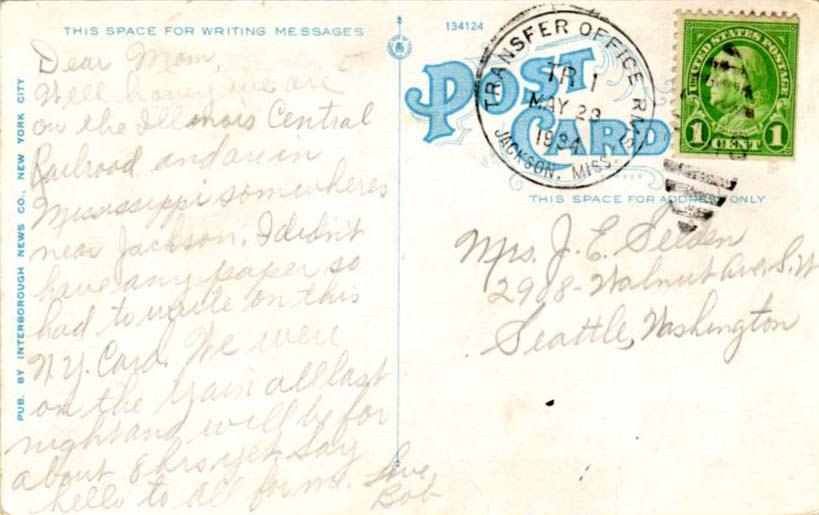 THIS SPACE FOR WRITING MESSAGES
134124
Dear Mom,
Well honey we are
on the Illinois Central
Railroad and are in
Mississippi somewheres
near Jackson. I didn't
have any paper so
had to write on this
N.Y. Card. We were
on the train all last
night and will be for
about 8 hrs yet. Say
hello to all for me. Love,
Bob
PUB. BY INTERBOROUGH NEWS CO., NEW YORK CITY
POST CARD
TRANSFER OFFICE R.M.S.
TR 1
MAY 29
1934
JACKSON, MISS.
UNITED STATES POSTAGE
1 CENT 1
THIS SPACE FOR ADDRESS ONLY
Mrs. J. E. Selden
2908-Walnut Ave. S.W
Seattle, Washington